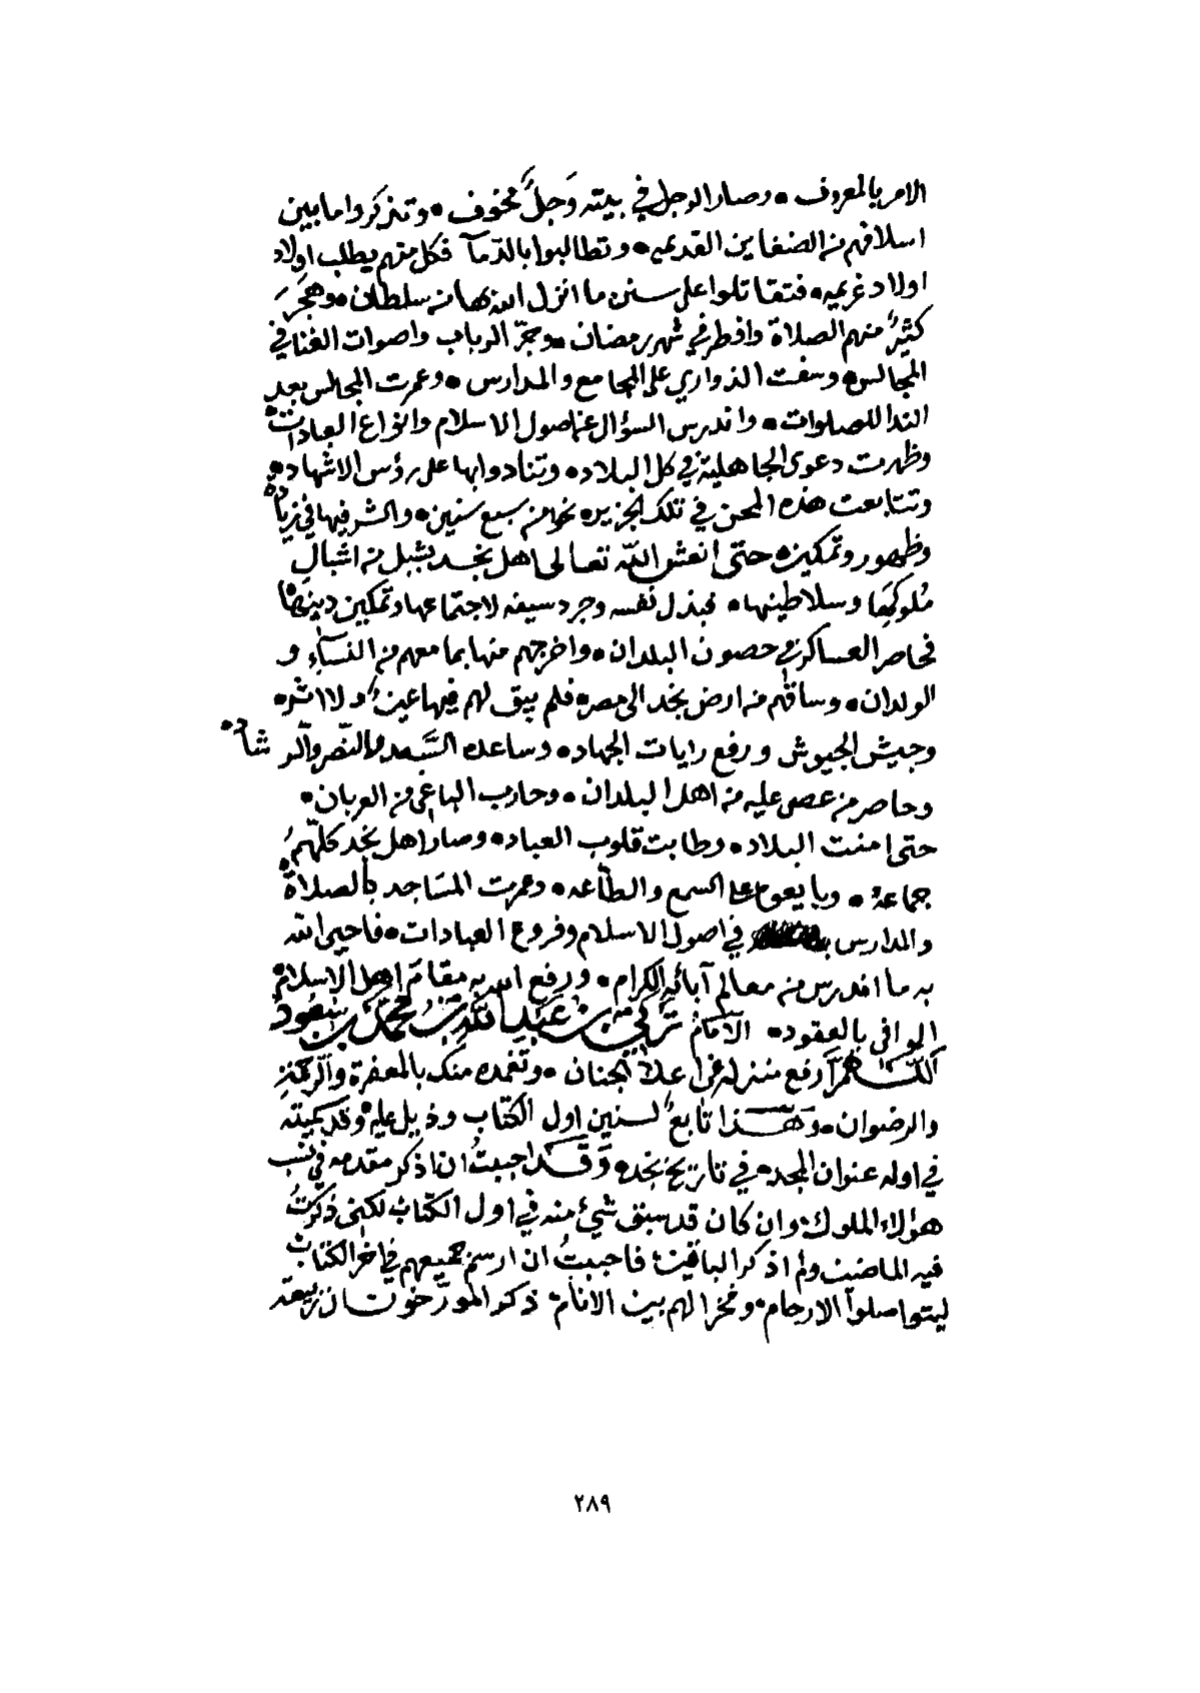 الامر بالمعروف • وصار الرجل في بيته وَجِلٌ مخوف • وتذكروا ما بين
اسلافهم من الضغاين القديمه • وتطالبوا بالدّمآ فكل منهم يطلب اولاد
اولاد غريمه • فتقاتلوا على سنن ما انزل الله بها من سلطان • وهَجَرَ
كثيرٌ منهم الصلاة وافطر في شهر رمضان • وجرّ الرباب واصوات الغنا في
المجالس • وسفت الذواري على المجامع والمدارس • وعمرت المجالس بعد
الندا للصلوات • واندرس السؤال عن اصول الاسلام وانواع العبادات •
وظهرت دعوى الجاهلية في كل البلاد • وتنادوا بها على رؤس الاشهاد •
وتتابعت هذه المحن في تلك الجزيره نحوا من سبع سنين • والشر فيها في زياده
وظهور وتمكين • حتى انعش الله تعالى اهل نجد بشبل من اشبال
مُلوكِهَا وسلاطينها • فبذل نفسه وجرد سيفه لاجتماعها وتمكين دينها •
فحاصر العساكر في حصون البلدان • واخرجهم منها بما معهم من النسآء و
الولدان • وساقهم من ارض نجد الى مصر • فلم يبق لهم فيها عينٌ ولا اثر •
وجيش الجيوش ورفع رايات الجهاد • وساعده السَّعد والنّصر والرشاد •
وحاصر من عصى عليه من اهل البلدان • وحارب الباغي من العربان •
حتى امنت البلاد • وطابت قلوب العباد • وصار اهل نجد كلّهمُ
جماعة • وبايعوه على السمع والطّاعه • وعمرت المسَاجد بالصلاة •
والمدارس في اصول الاسلام وفروع العبادات • فاحيى الله
به ما اندرس من معالم آبائه الكرام • ورفع الله به مقامَ اهل الاسلام
الوافي بالعقود • الآمام تركي بن عبد الله بن محمد بن سعود
اللّهمّ ارفع منزله في اعلا الجنان • وتغمده منك بالمغفرة والرّحمة
والرضوان • وَهَذا تابعٌ لسنين اول الكتاب وذيل عليه • وقد سميته
في اوله عنوان المجد • في تاريخ نجد • وَقَد احببتُ ان اذكر مقدمه في نسب
هؤلاء الملوك • وان كان قد سبق شيٌ منه في اول الكتاب لكني ذكرتُ
فيه الماضين ولم اذكر الباقين • فاحببتُ ان ارسم جميعهم في اخر الكتاب
ليتواصلوا الارحام • وفخرا لهم بين الانام • ذكر المورّخون ان ربيعة
٢٨٩